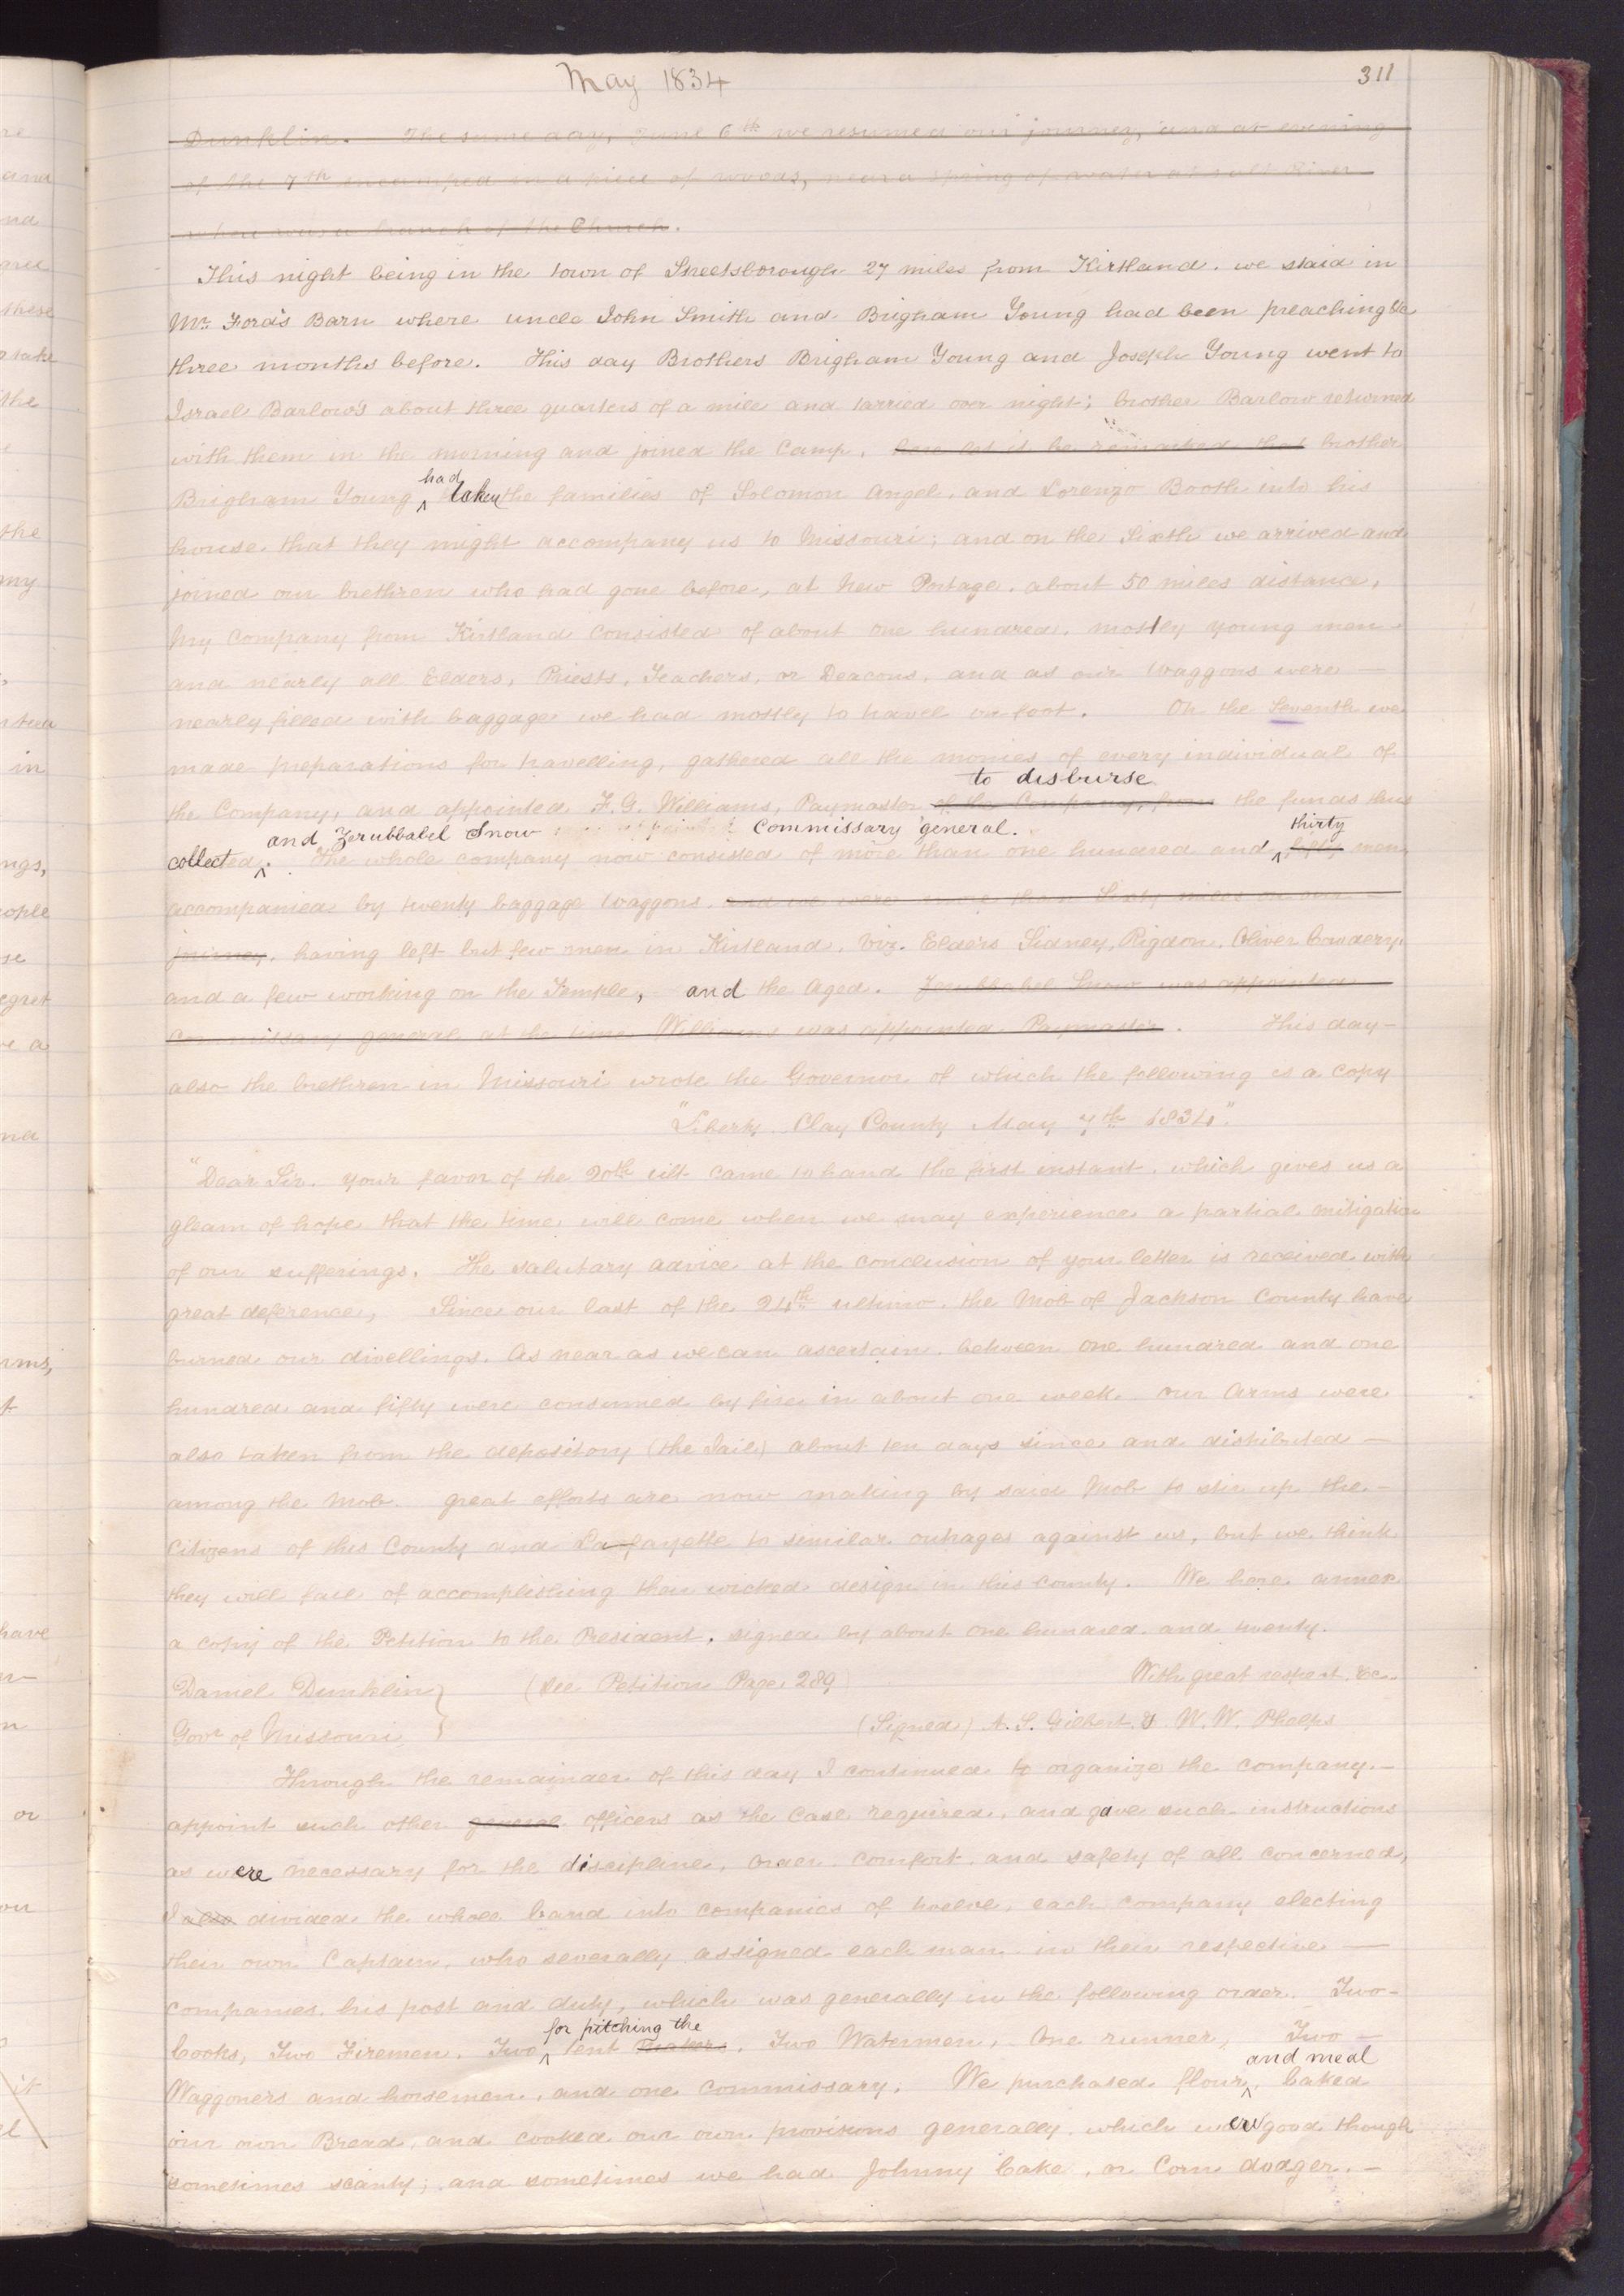 May 1834
311
Dunklin. The same day, June 6th we resumed our journey, and at evening
of the 7th encamped in a piece of woods, near a spring of water at salt River
where was a branch of the Church.
This night being in the town of Streetsborough 27 miles from Kirtland. we staid in
Mr. Ford's Barn where uncle John Smith and Brigham Young had been preaching
three months before. This day Brothers Brigham Young and Joseph Young went to
Israel Barlow's about three quarters of a mile and tarried over night; brother Barlow returned
with them in the morning and joined the Camp. here let it be remarked that brother
had
Brigham Young ^ taken the families of Solomon Angel, and Lorenzo Booth into his
house that they might accompany us to Missouri; and on the Sixth we arrived and
joined our brethren who had gone before, at New Portage, about 50 miles distance,
My Company from Kirtland Consisted of about one hundred, mostly young men
and nearly all Elders, Priests, Teachers, or Deacons, and as our Waggons were —
nearly filled with baggage we had mostly to travel on foot. On the Seventh we
made preparations for travelling, gathered all the monies of every individual of
to disburse
the Company, and appointed F. G. Williams, Paymaster of the Company, from the funds thus
and Zerubbabel Snow Commissary general. thirty
collected ^. The whole company now consisted of more than one hundred and ^ fifty men,
accompanied by twenty baggage Waggons. and we were more than Sixty miles on our —
journey. having left but few men in Kirtland, viz. Elders Sidney, Rigdon, Oliver Cowdery
and a few working on the Temple, and the Aged. Zerubbabel Snow was appointed
Commissary general at the time Williams was appointed Paymaster. This day –
also the brethren in Missouri wrote the Governor of which the following is a Copy
"Liberty. Clay County May 7th 1834."
"Dear Sir. your favor of the 20th ult came to hand the first instant, which gives us a
gleam of hope that the time will come when we may experience a partial mitigation
of our sufferings. The salutary advice at the conclusion of your letter is received with
great deference, Since our last of the 24th ultimo. the Mob of Jackson County have
burned our dwellings. As near as we can ascertain between one hundred and one
hundred and fifty were consumed by fire in about one week. our Arms were
also taken from the depository (the Jail) about ten days since and distributed —
among the Mob. great efforts are now making by said Mob to stir up the –
Citizens of this County and La-fayette to similar outrages against us, but we think
they will fail of accomplishing their wicked design in this county. We here annex
a copy of the Petition to the President, signed by about one hundred and twenty.
Daniel Dunklin } (See Petition Page 289) With great respect &c
Govr of Missouri, } (Signed) A. S. Gilbert & W. W. Phelps
Through the remainder of this day I continued to organize the company. –
appoint such other general officers as the Case required. and gave such instructions
as were necessary for the discipline, order, comfort and safety of all Concerned,
I also divided the whole band into companies of twelve, each company electing
their own Captain, who severally assigned each man in their respective —
companies, his post and duty, which was generally in the following order. Two –
for pitching the
Cooks, Two Firemen, Two ^ tent makers, Two Watermen, One runner, Two –
and meal
Waggoners and horsemen, and one Commissary. We purchased flour ^, baked
our own Bread, and cooked our own provisions generally, which were good though
sometimes scanty; and sometimes we had Johnny Cake, or Corn dodger. –